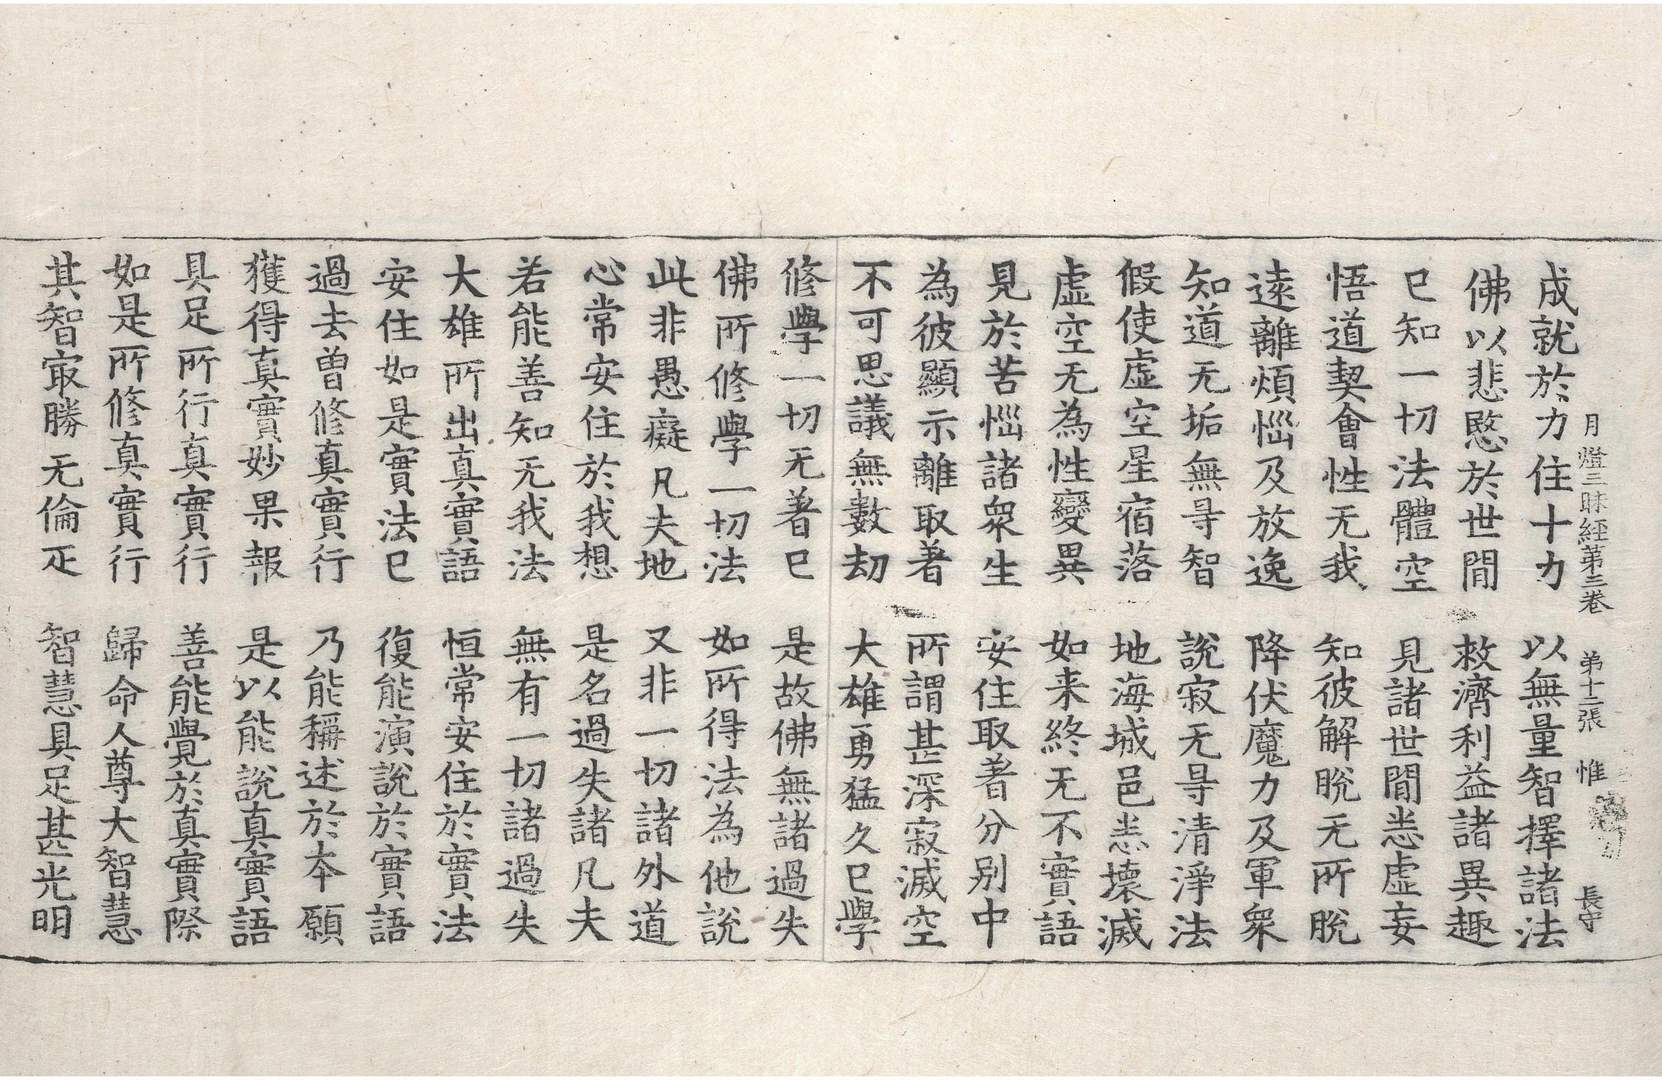 月燈三昧経第三卷 第十二張 惟 長守
成就於力住十力 以無量智擇諸法
佛以悲愍於世間 救濟利益諸異趣
已知一切法體空 見諸世間悉虛妄
悟道契會性无我 知彼解脫无所脫
遠離煩惱及放逸 降伏魔力及軍衆
知道无垢無㝵智 說寂无㝵清淨法
假使虛空星宿落 地海城邑悉壞滅
虛空无為性變異 如来終无不實語
見於苦惱諸衆生 安住取著分別中
為彼顯示離取著 所謂甚深寂滅空
不可思議無數劫 大雄勇猛久已學
修學一切无著已 是故佛無諸過失
佛所修學一切法 如所得法為他說
此非愚癡凡夫地 又非一切諸外道
心常安住於我想 是名過失諸凡夫
若能善知无我法 無有一切諸過失
大雄所出真實語 恒常安住於實法
安住如是實法已 復能演說於實語
過去曾修真實行 乃能稱述於本願
獲得真實妙果報 是以能說真實語
具足所行真實行 善能覺於真實際
如是所修真實行 歸命人尊大智慧
其智㝡勝无倫疋 智慧具足甚光明